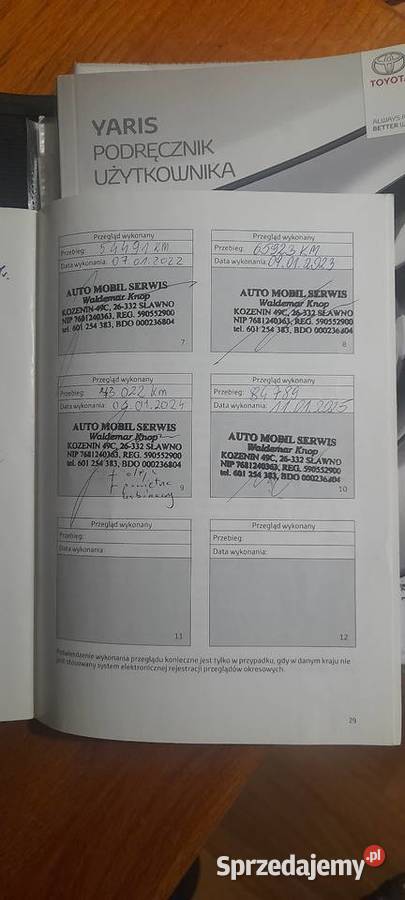 TOYOTA
ALWAYS A
BETTER W
YARIS
PODRĘCZNIK
UŻYTKOWNIKA
Przegląd wykonany
Przebieg: 54491 KM
Data wykonania: 07.01.2022
AUTO MOBIL SERWIS
Waldemar Knop
KOZENIN 49C, 26-332 SŁAWNO
NIP 7681240363, REG. 590552900
tel. 601 254 383, BDO 000236804
7
Przegląd wykonany
Przebieg: 65923 KM
Data wykonania: 04.01.2023
AUTO MOBIL SERWIS
Waldemar Knop
KOZENIN 49C, 26-332 SŁAWNO
NIP 7681240363, REG. 590552900
tel. 601 254 383, BDO 000236804
8
Przegląd wykonany
Przebieg: 73 022 Km
Data wykonania: 01.2024
AUTO MOBIL SERWIS
Waldemar Knop
KOZENIN 49C, 26-332 SŁAWNO
NIP 7681240363, REG. 590552900
tel. 601 254 383, BDO 000236804
+ olej
9
Przegląd wykonany
Przebieg: 84789
Data wykonania: 11.01.2025
AUTO MOBIL SERWIS
Waldemar Knop
KOZENIN 49C, 26-332 SŁAWNO
NIP 7681240363, REG. 590552900
tel. 601 254 383, BDO 000236804
10
Przegląd wykonany
Przebieg:
Data wykonania:
11
Przegląd wykonany
Przebieg:
Data wykonania:
12
Potwierdzenie wykonania przeglądu konieczne jest tylko w przypadku, gdy w danym kraju nie
jest stosowany system elektronicznej rejestracji przeglądów okresowych.
29
Sprzedajemy.pl